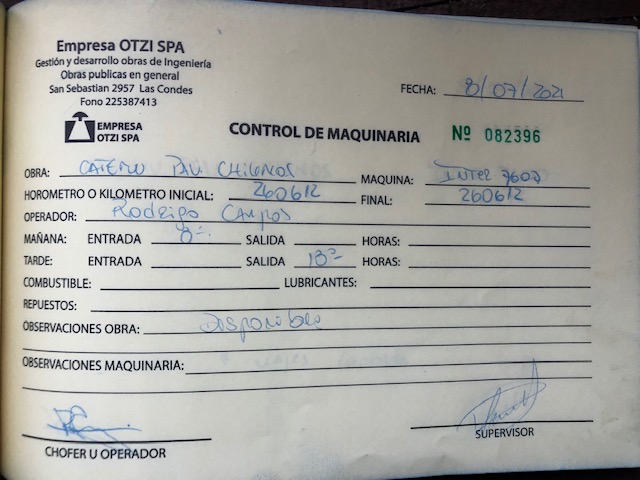 Empresa OTZI SPA
Gestión y desarrollo obras de Ingeniería
Obras publicas en general
San Sebastian 2957 Las Condes
Fono 225387413
FECHA: 8/07/2021
EMPRESA
OTZI SPA
CONTROL DE MAQUINARIA Nº 082396
OBRA: MAQUINA: INTER 7600
HOROMETRO O KILOMETRO INICIAL: 260612 FINAL: 260612
OPERADOR: Rodrigo Campos
MAÑANA: ENTRADA 8:- SALIDA HORAS:
TARDE: ENTRADA SALIDA 18:- HORAS:
COMBUSTIBLE: LUBRICANTES:
REPUESTOS:
OBSERVACIONES OBRA: Disponible
OBSERVACIONES MAQUINARIA:
CHOFER U OPERADOR
SUPERVISOR